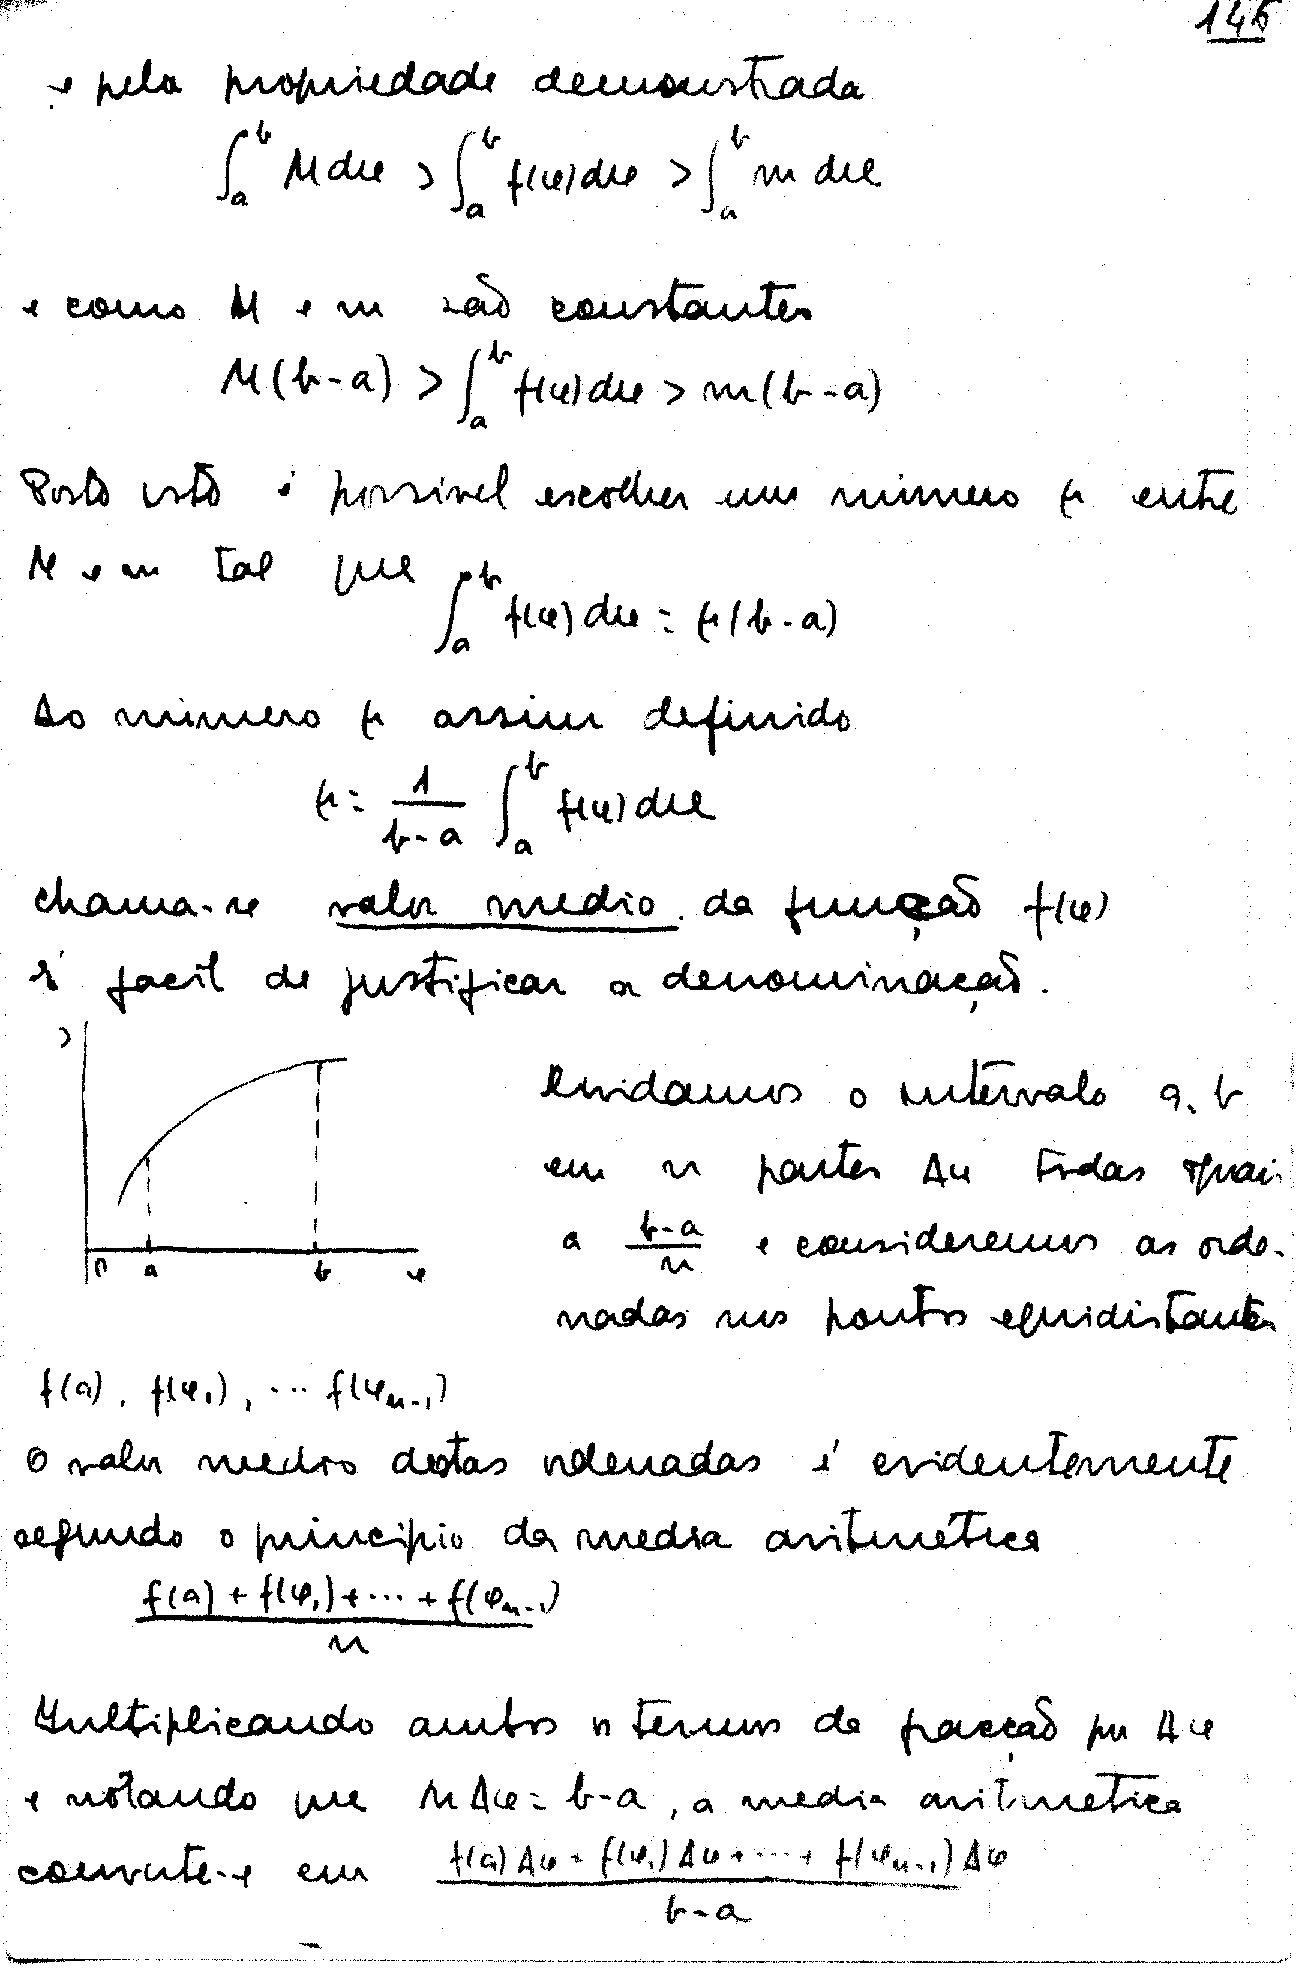 146
e pela propriedade demonstrada
∫_a^b M dφ > ∫_a^b f(φ)dφ > ∫_a^b m dφ
e como M e m são constantes
M(b-a) > ∫_a^b f(φ)dφ > m(b-a)
Posto isto é possivel escolher um número μ entre
M e m tal que
∫_a^b f(φ)dφ = μ(b-a)
Ao número μ assim definido
μ = 1/(b-a) ∫_a^b f(φ)dφ
chama-se valor medio da função f(φ)
É facil de justificar a denominação.
Dividamos o intervalo a, b
em n partes Δφ todas iguais
a (b-a)/n e consideremos as orde-
nadas nos pontos equidistantes
a b φ
f(a), f(φ₁), ... f(φₙ₋₁)
O valor medio destas ordenadas é evidentemente
segundo o principio da media aritmética
(f(a) + f(φ₁) + ... + f(φₙ₋₁))/n
Multiplicando ambos os termos da fracção por Δφ
e notando que nΔφ = b-a, a media aritmetica
converte-se em (f(a)Δφ + f(φ₁)Δφ + ... + f(φₙ₋₁)Δφ)/(b-a)